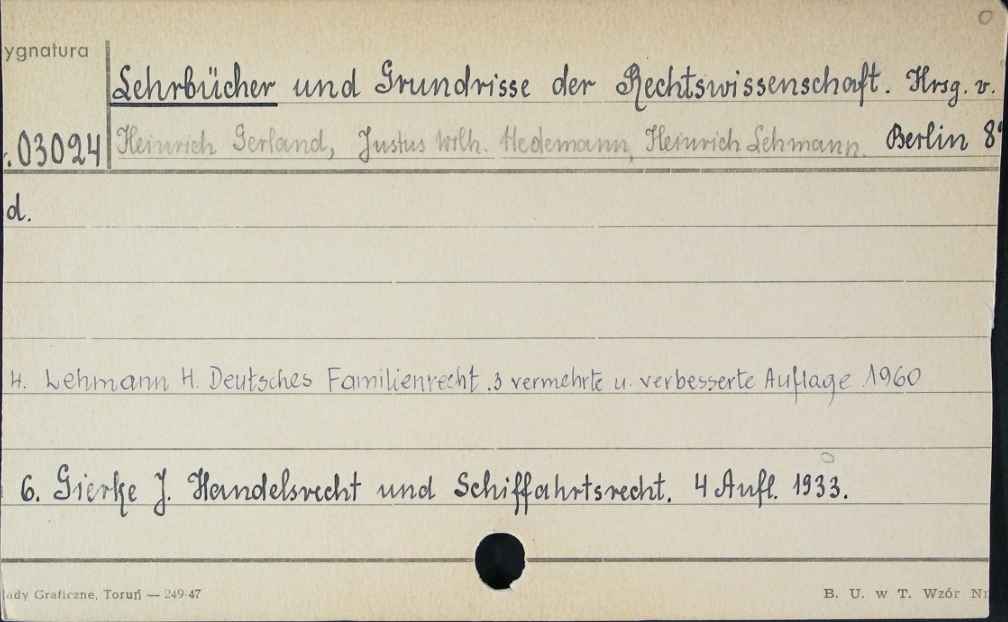 0
ygnatura
Lehrbücher und Grundrisse der Rechtswissenschaft. Hrsg. v.
.03024 Heinrich Gerland, Justus Wilh. Hedemann, Heinrich Lehmann. Berlin 8°
d.
4. Lehmann H. Deutsches Familienrecht .3 vermehrte u. verbesserte Auflage 1960
6. Gierke J. Handelsrecht und Schiffahrtsrecht. 4 Aufl. 1933.
ady Graficzne, Toruń — 249-47 B. U. w T. Wzór Nr